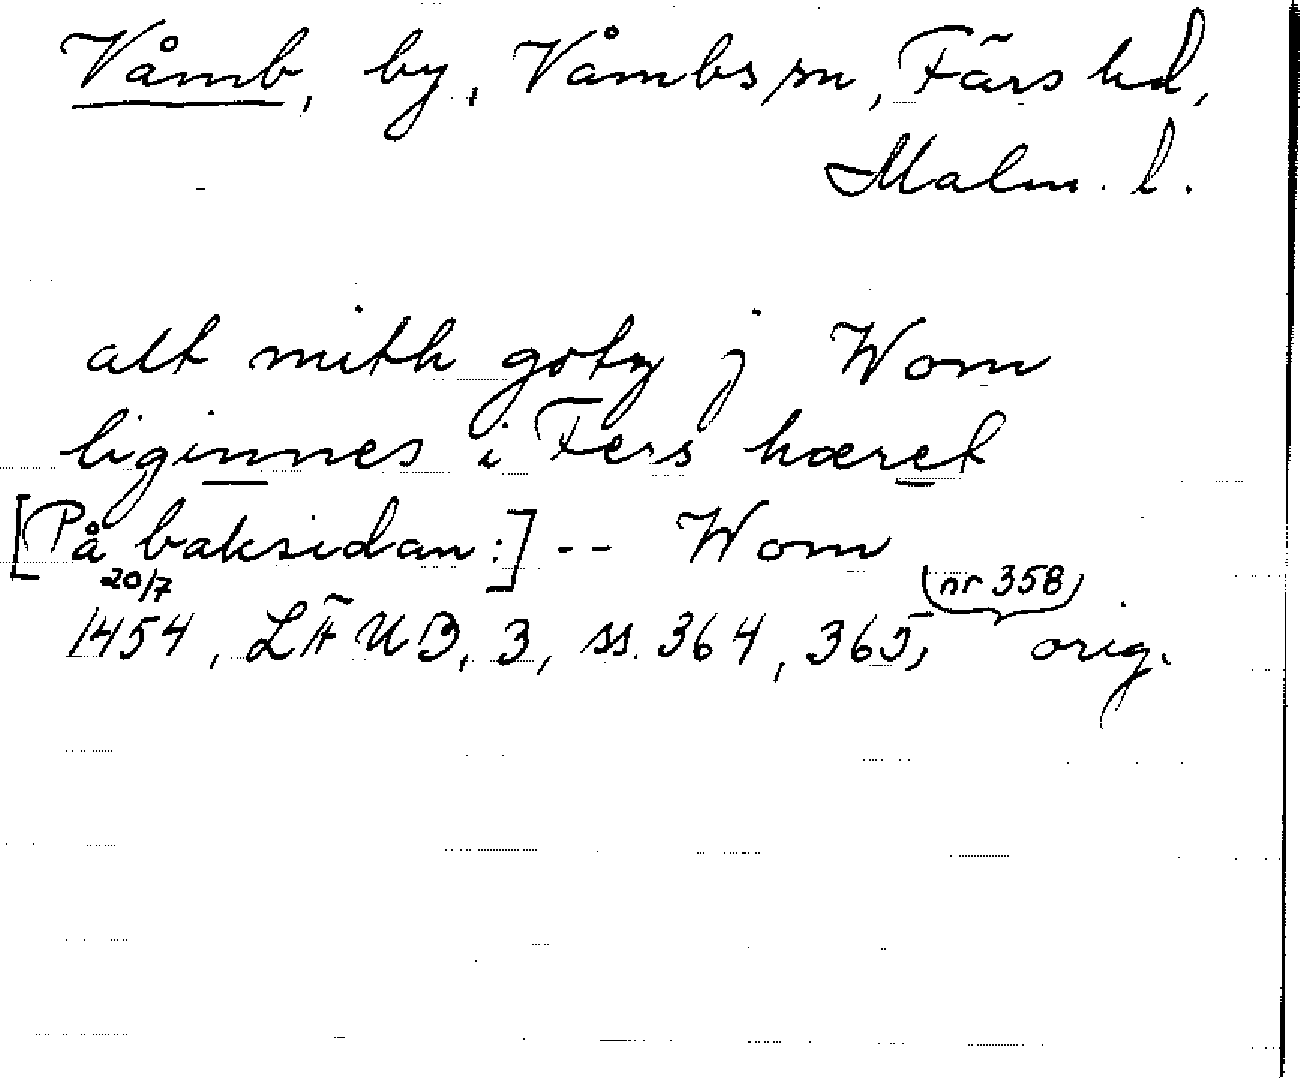 Våmb, by, Våmbs sn, Färs hd,
Malm. l.
alt mith gotz j Wom
liginnes i Fers hæret
[På baksidan:] -- Wom
20/7 nr 358
1454, LÄUB, 3, ss. 364, 365, orig.